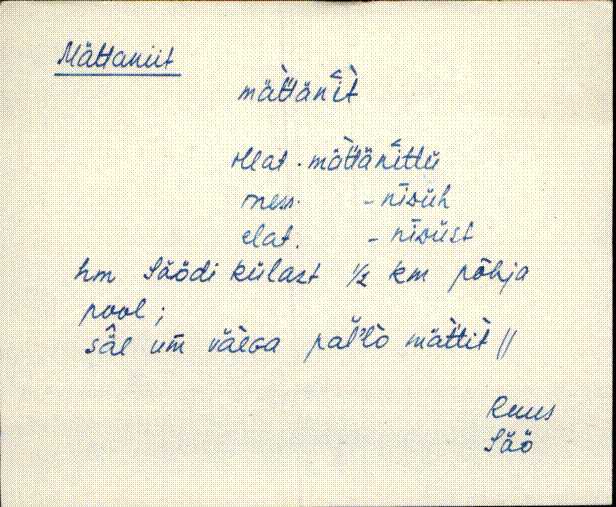 Mättaniit
mät̀t̀äni̬ì̀t
illat. mät̀t̀änīttü
iness. - nīsüh
elat. - nīsüst
hm Säödi külast ½ km põhja
pool;
säl um väega pal'l'o mättit //
Ruus
Säö